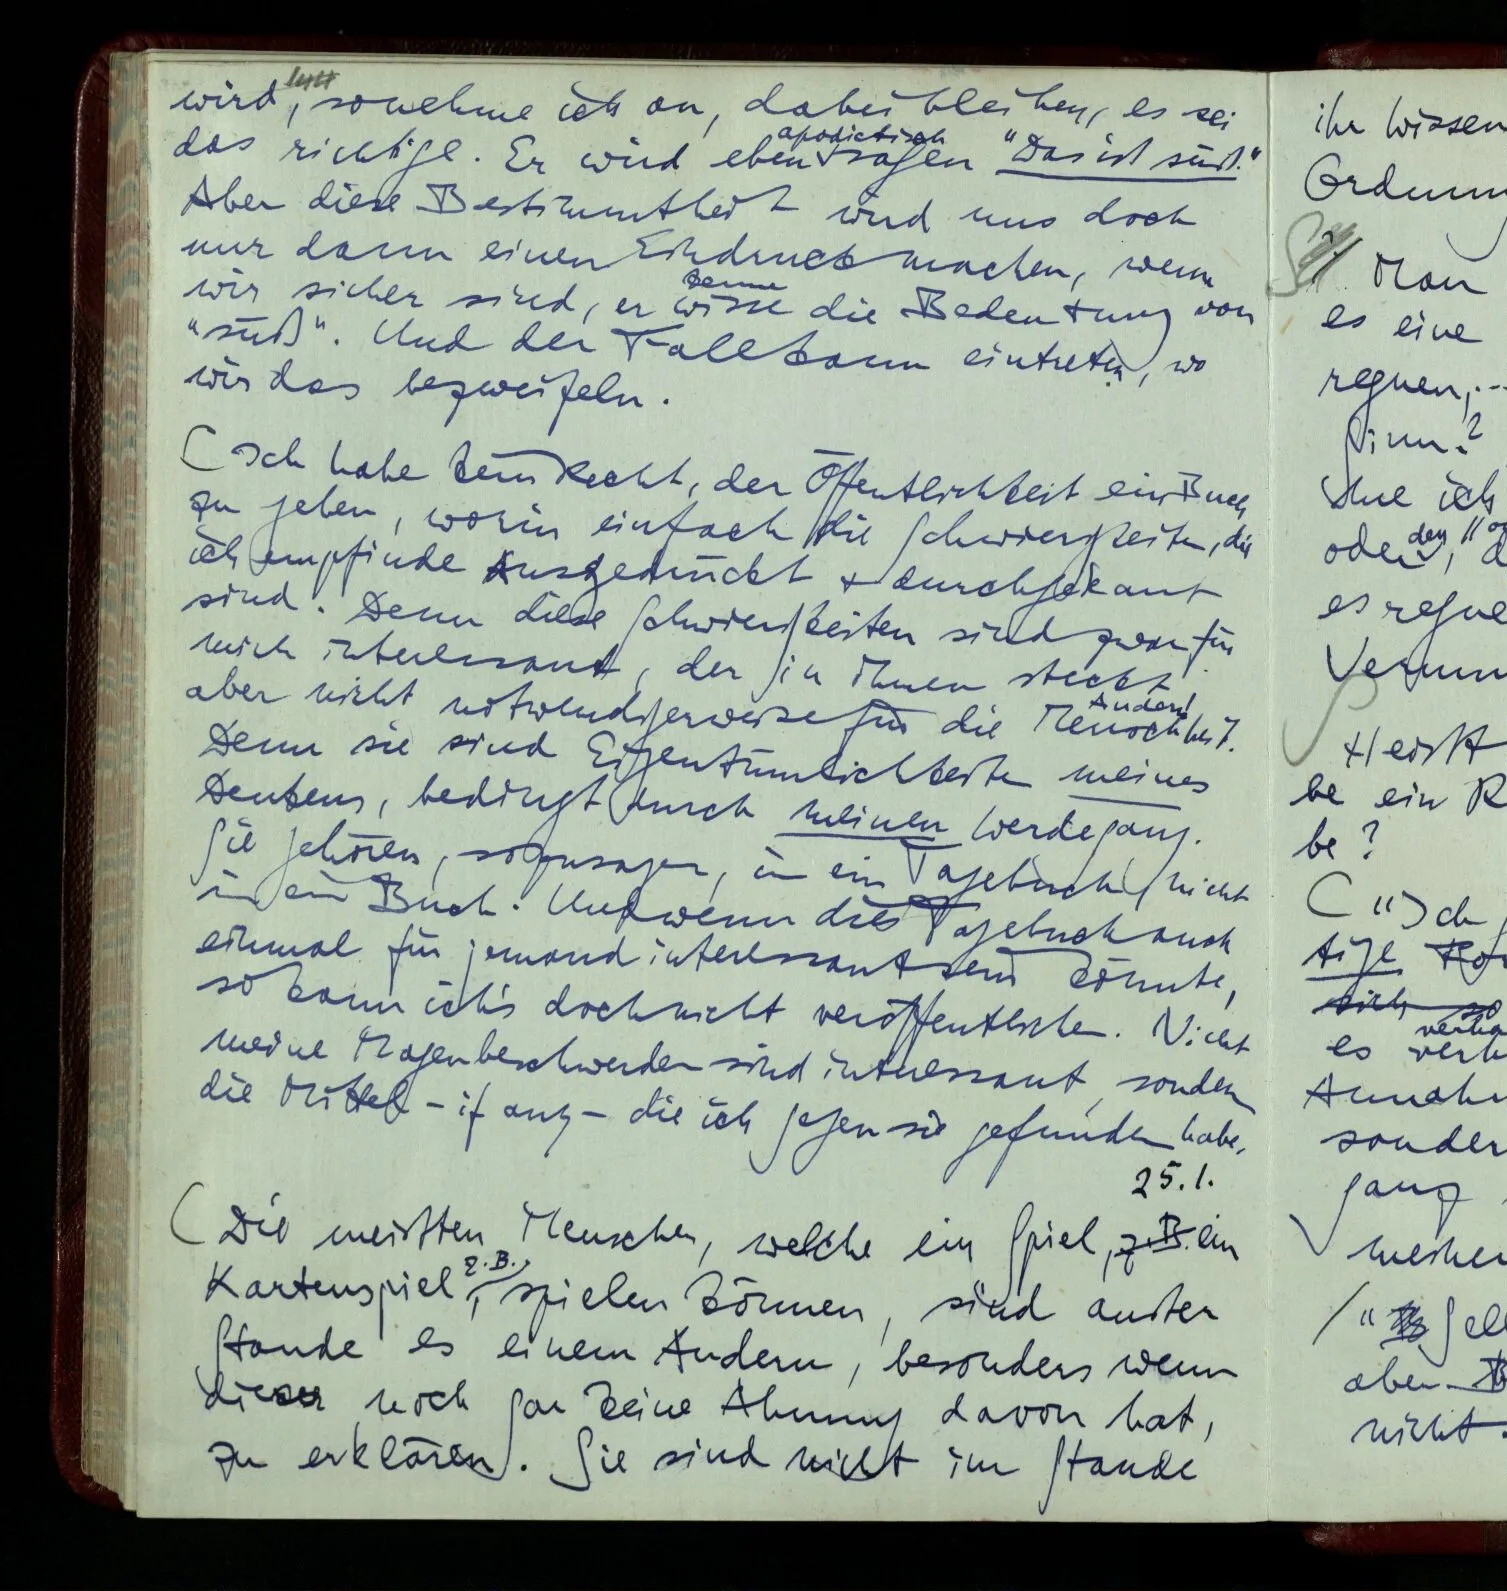 wird, so nehme ich an, dabei bleiben, es sei
das richtige. Er wird eben apodictisch sagen "Das ist süß."
Aber diese Bestimmtheit wird uns doch
nur dann einen Eindruck machen, wenn
wir sicher sind, er kenne wisse die Bedeutung von
"süß". Und der Fall kann eintreten, wo
wir das bezweifeln.
( Ich habe kein Recht, der Öffentlichkeit ein Buch
zu geben, worin einfach die Schwierigkeiten, die
ich empfinde ausgedrückt + durchgekaut
sind. Denn diese Schwierigkeiten sind zwar für
mich interessant, der in ihnen steckt
aber nicht notwendigerweise für die Andern Menschheit.
Denn sie sind Eigentümlichkeiten meines
Denkens, bedingt durch meinen Werdegang.
Sie gehören, sozusagen, in ein Tagebuch, nicht
in ein Buch. Und wenn dies Tagebuch auch
einmal für jemand interessant sein könnte,
so kann ich's doch nicht veröffentlichen. Nicht
meine Magenbeschwerden sind interessant, sondern
die Mittel – if any – die ich gegen sie gefunden habe.
25.1.
( Die meisten Menschen, welche ein Spiel, z.B. ein
Kartenspiel z.B., spielen können, sind außer
Stande es einem Andern, besonders wenn
dieser noch gar keine Ahnung davon hat,
zu erklären. Sie sind nicht im Stande
ihr Wissen
Ordnung
Man
es eine
regnen, ...
Sinn?
ich
oder den
es regne
Heißt
be ein R
be?
( "Ich
tige
es
Annahm
sonder
ganz
meinen
/ "
aber
nicht.